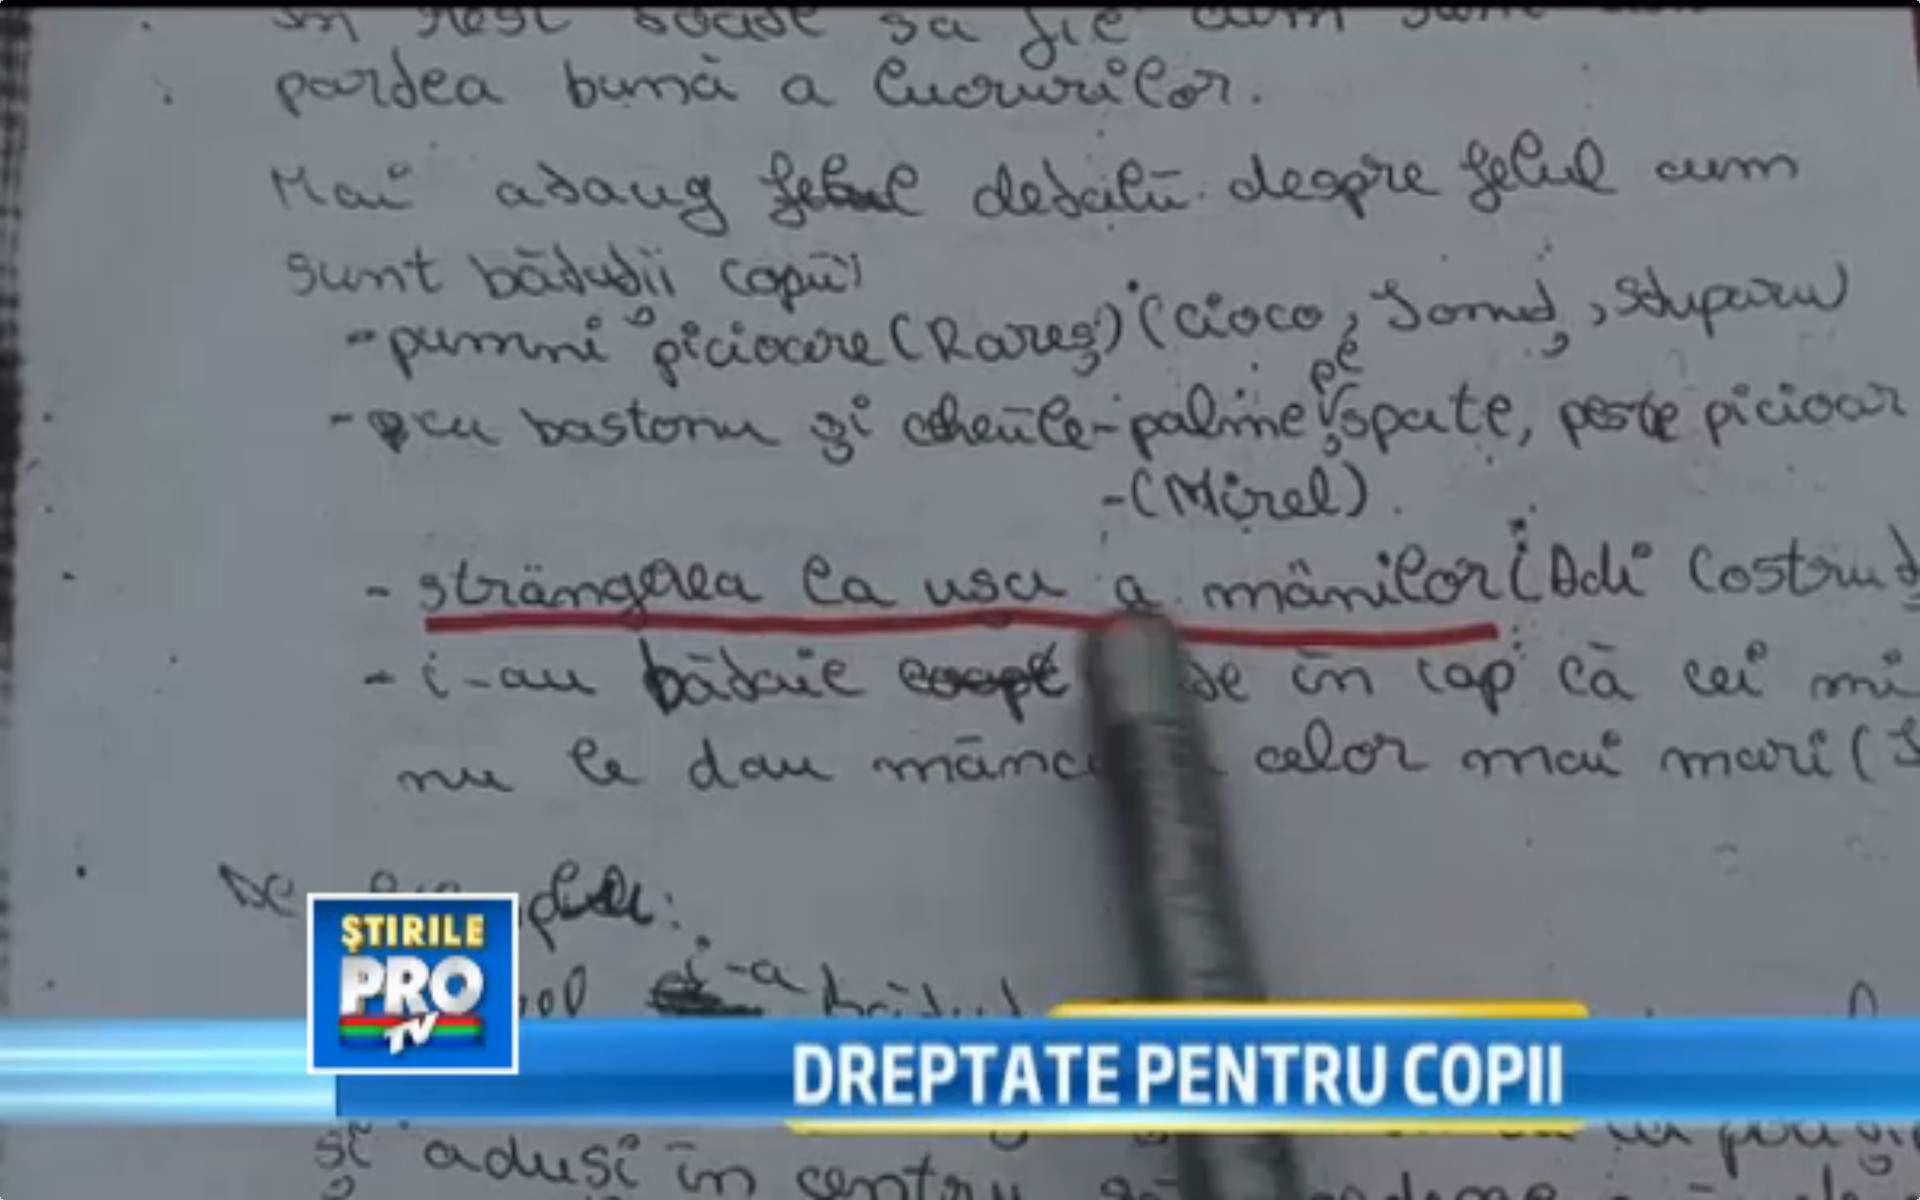 să fie cum sunt
pardea bună a lucrurilor.
Mai adaug felul detalii despre felul cum
sunt bătuții copii
- pumni picioare (Rareș) (Cioco, Ionuț, Stuparu
pe
- cu bastonu și cheile - palme, spate, peste picioar
- (Mirel).
- strângerea la usa a mânilor (Adi Costru
- i-au bătaie în cap că cei mi
nu le dau mânc celor mai mari (
De
i-a bătut
ȘTIRILE
PRO
TV
DREPTATE PENTRU COPII
și aduși în centru